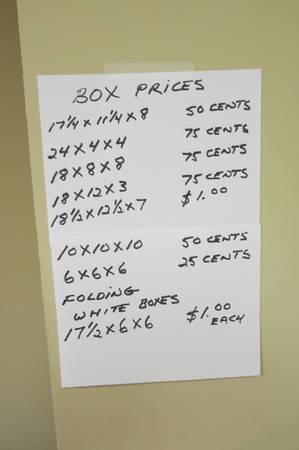 BOX PRICES
17 1/4 X 11 1/4 X 8 50 CENTS
24 X 4 X 4 75 CENTS
18 X 8 X 8 75 CENTS
18 X 12 X 3 75 CENTS
18 1/2 X 12 1/2 X 7 $1.00
10 X 10 X 10 50 CENTS
6 X 6 X 6 25 CENTS
FOLDING
WHITE BOXES
17 1/2 X 6 X 6 $1.00
EACH